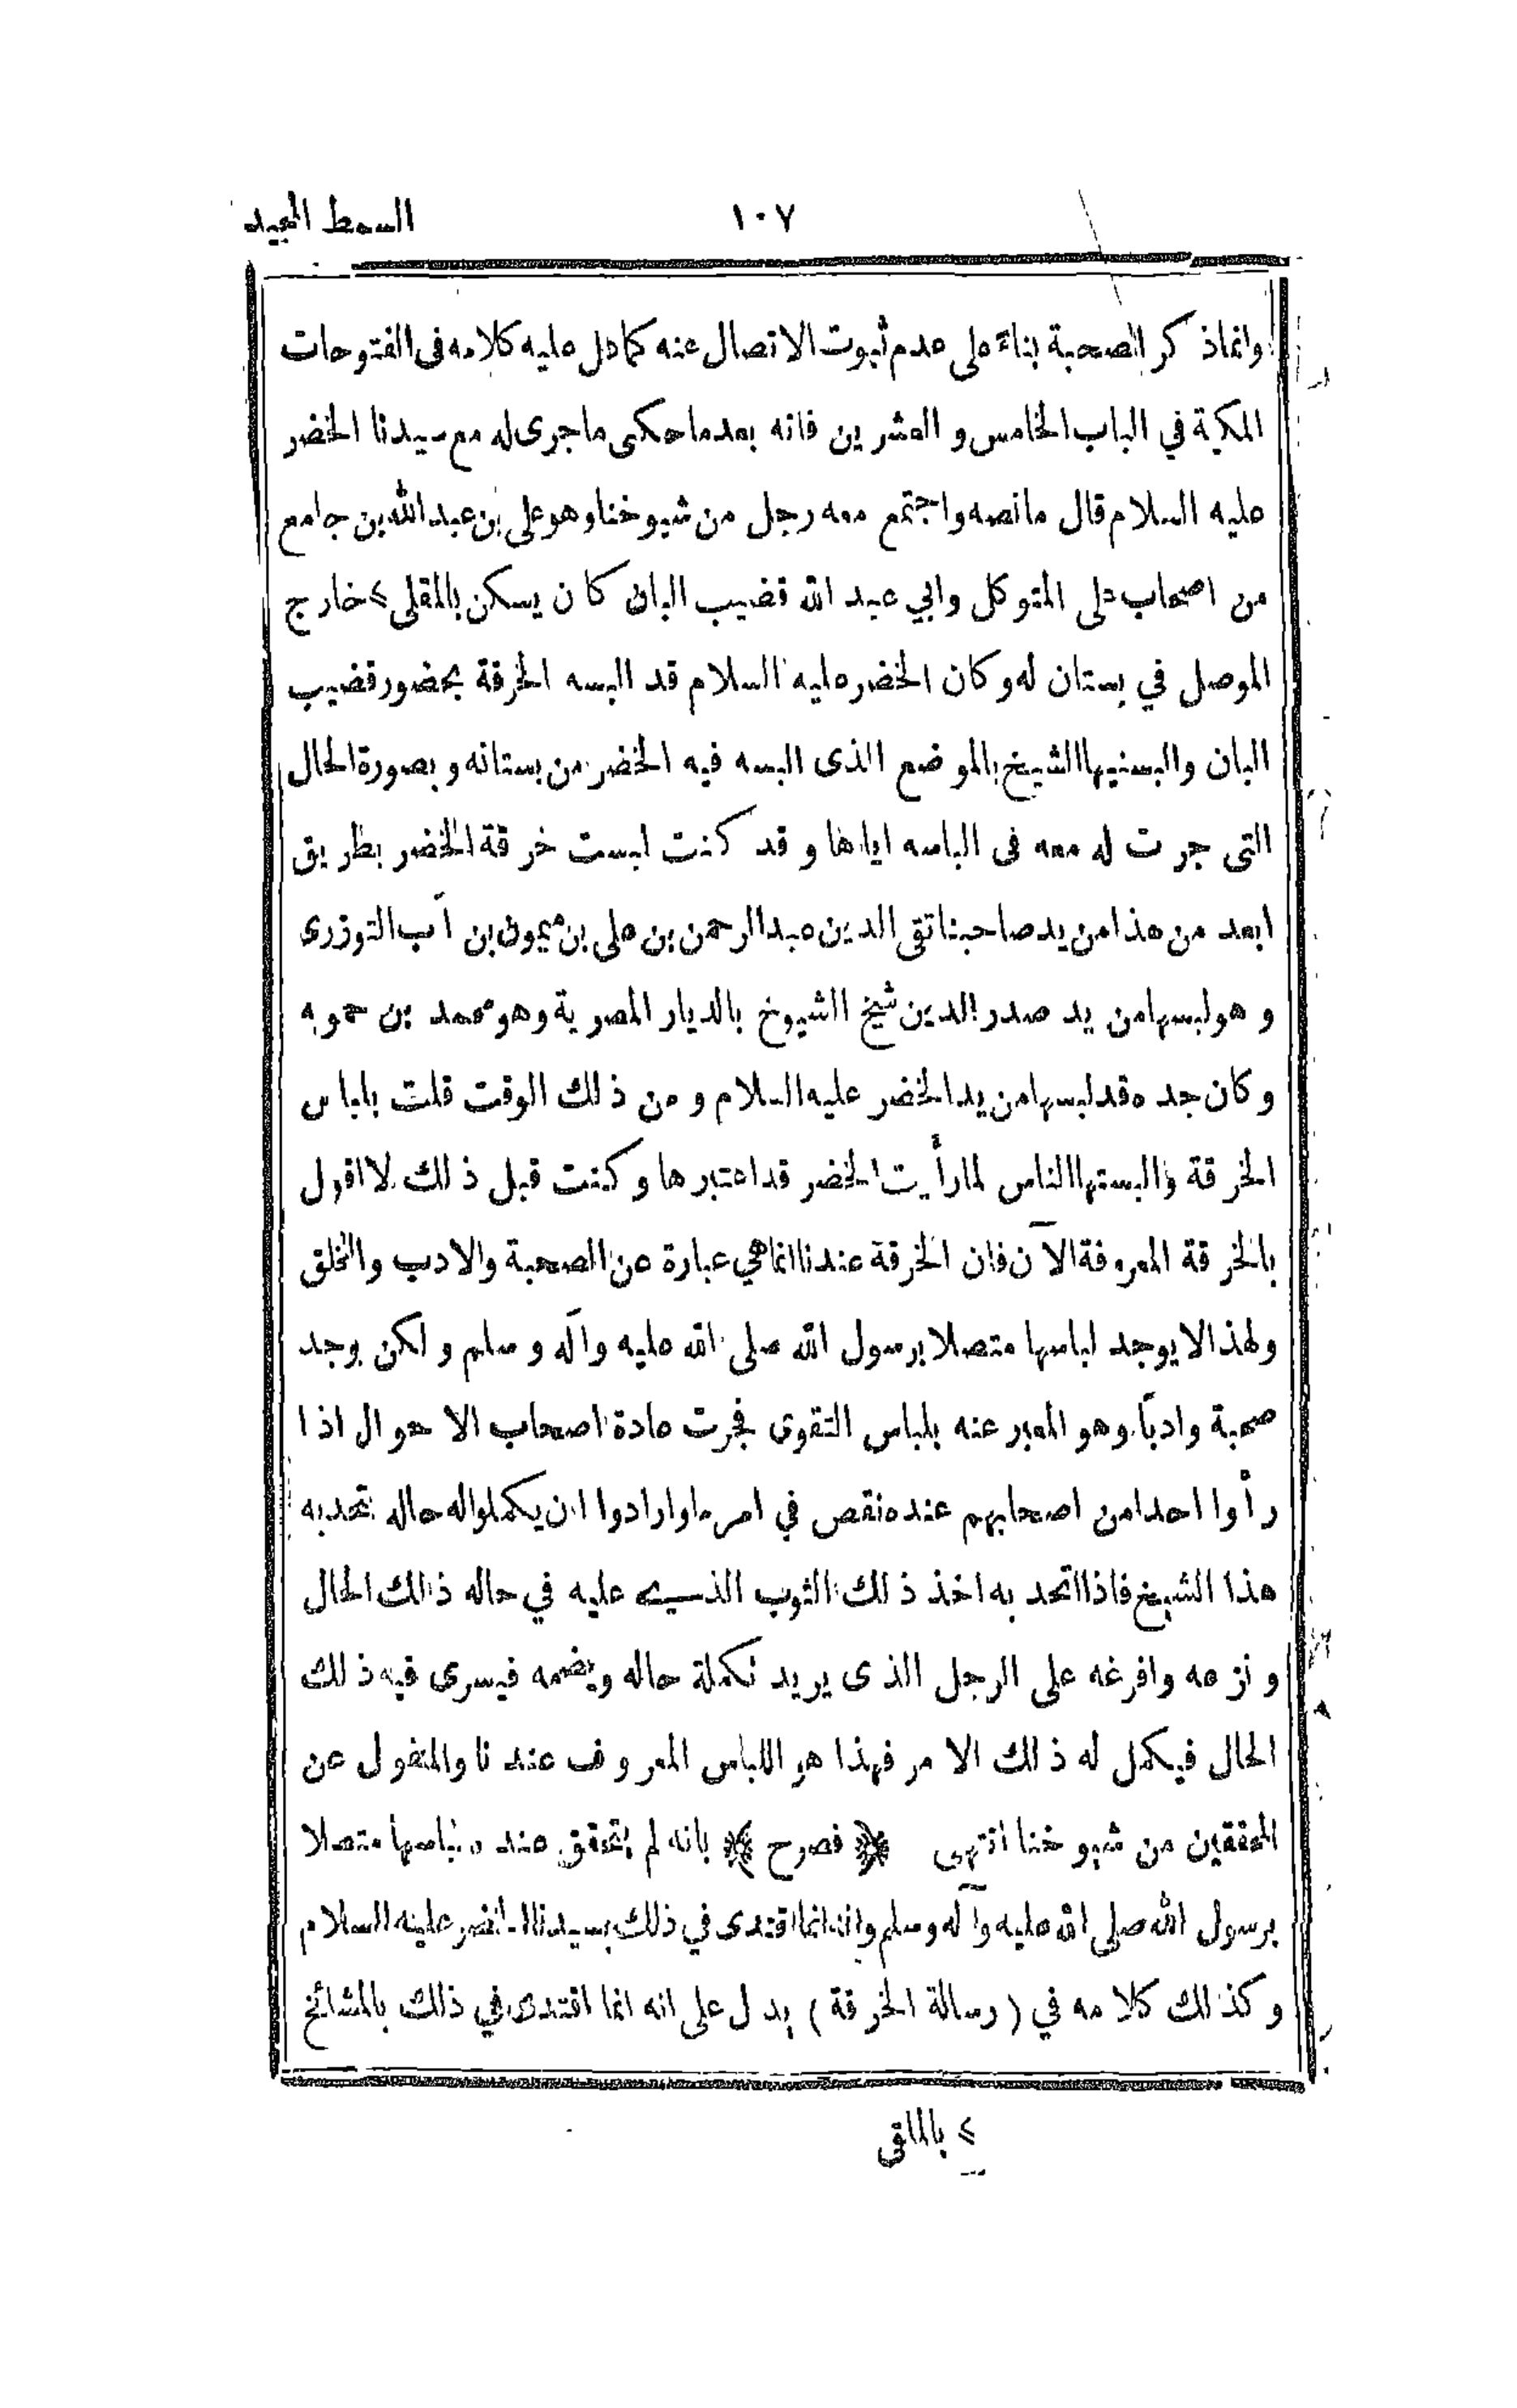 السمط المجيد
١٠٧
وانما ذكر الصحبة بناءً على عدم ثبوت الاتصال عنه كما دل عليه كلامه فى الفتوحات
المكية في الباب الخامس و العشرين فانه بعد ما حكى ما جرى له مع سيدنا الخضر
عليه السلام قال ما نصه واجتمع معه رجل من شيوخنا وهو على بن عبد الله بن جامع
من اصحاب على المتوكل وابي عبد الله قضيب البان كان يسكن بالمقلى > خارج
الموصل في بستان له وكان الخضر عليه السلام قد البسه الخرقة بحضور قضيب
البان والبسنيها الشيخ بالموضع الذى البسه فيه الخضر من بستانه و بصورة الحال
التى جرت له معه فى الباسه اياها و قد كنت لبست خرقة الخضر بطريق
ابعد من هذا من يد صاحبنا تقى الدين عبد الرحمن بن على بن ميمون بن آب التوزرى
و هو لبسها من يد صدر الدين شيخ الشيوخ بالديار المصرية وهو محمد بن حمويه
وكان جده قد لبسها من يد الخضر عليه السلام و من ذلك الوقت قلت بلباس
الخرقة والبستها الناس لما رأيت الخضر قد اعتبرها و كنت قبل ذلك لا اقول
بالخرقة المعروفة الآن فان الخرقة عندنا انما هي عبارة عن الصحبة والادب والتخلق
ولهذا لا يوجد لباسها متصلا برسول الله صلى الله عليه وآله و سلم و لكن يوجد
صحبة وادبًا وهو المعبر عنه بلباس التقوى فجرت عادة اصحاب الاحوال اذا
رأوا احدا من اصحابهم عنده نقص في امر ما وارادوا ان يكملوا له حاله يتحد به
هذا الشيخ فاذا اتحد به اخذ ذلك الثوب الذى عليه في حاله ذلك الحال
و نزعه وافرغه على الرجل الذى يريد تكملة حاله ويضمه فيسرى فيه ذلك
الحال فيكمل له ذلك الامر فهذا هو اللباس المعروف عندنا والمنقول عن
المحققين من شيوخنا انتهى ﴿ فصرح ﴾ بانه لم يتحقق عنده لباسها متصلا
برسول الله صلى الله عليه وآله وسلم وانه انما اقتدى في ذلك بسيدنا الخضر عليه السلام
و كذلك كلامه في (رسالة الخرقة) يدل على انه انما اقتدى في ذلك بالمشائخ
> بالماقى